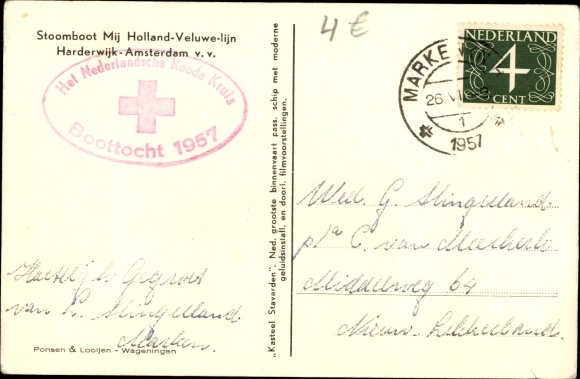 Stoomboot Mij Holland-Veluwe-lijn
Harderwijk-Amsterdam v.v.
Het Nederlandsche Roode Kruis
Boottocht 1957
4 €
NEDERLAND
4
CENT
MARKE
26.VI
1
1957
"Kasteel Staverden". Ned. grootste binnenvaart pass. schip met moderne
geluidsinstall. en doorl. filmvoorstellingen.
Wed. G. Slingerland
p/a C. van
Middelweg 64
Nieuw-Lekkerland.
Hartelijk Gegroet
van L. Slingerland
Marken.
Ponsen & Looijen - Wageningen